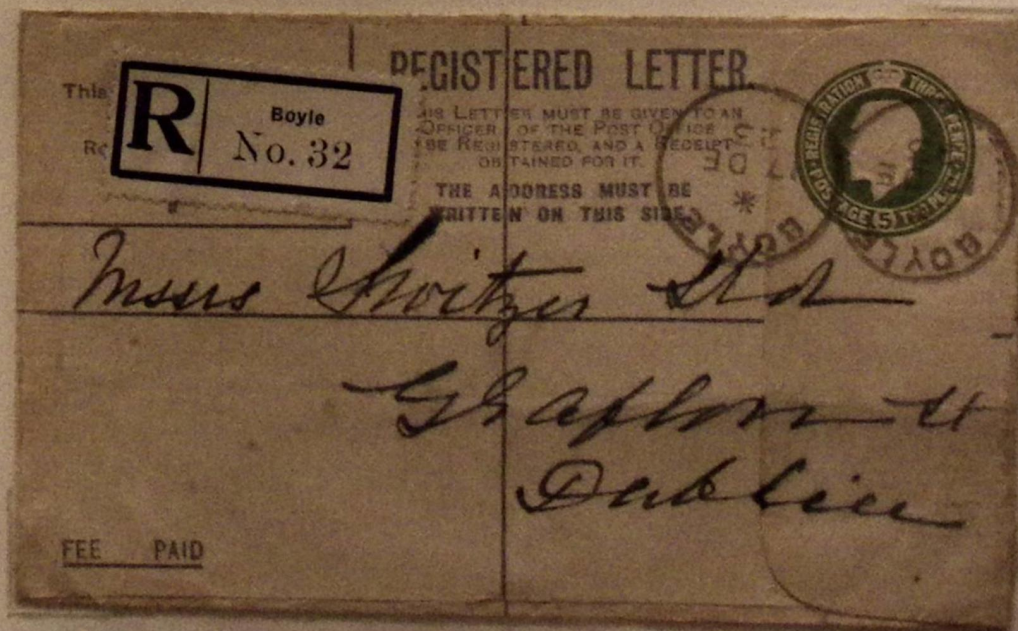 REGISTERED LETTER.
THIS LETTER MUST BE GIVEN TO AN
OFFICER OF THE POST OFFICE
BE REGISTERED, AND A RECEIPT
OBTAINED FOR IT.
THE ADDRESS MUST BE
WRITTEN ON THIS SIDE.
This
R Boyle
No. 32
REGISTRATION THREE PENCE
POSTAGE 5 TWO PENCE
BOYLE
17 DE
BOYLE
Messrs Switzer Ltd
Grafton St
Dublin
FEE PAID